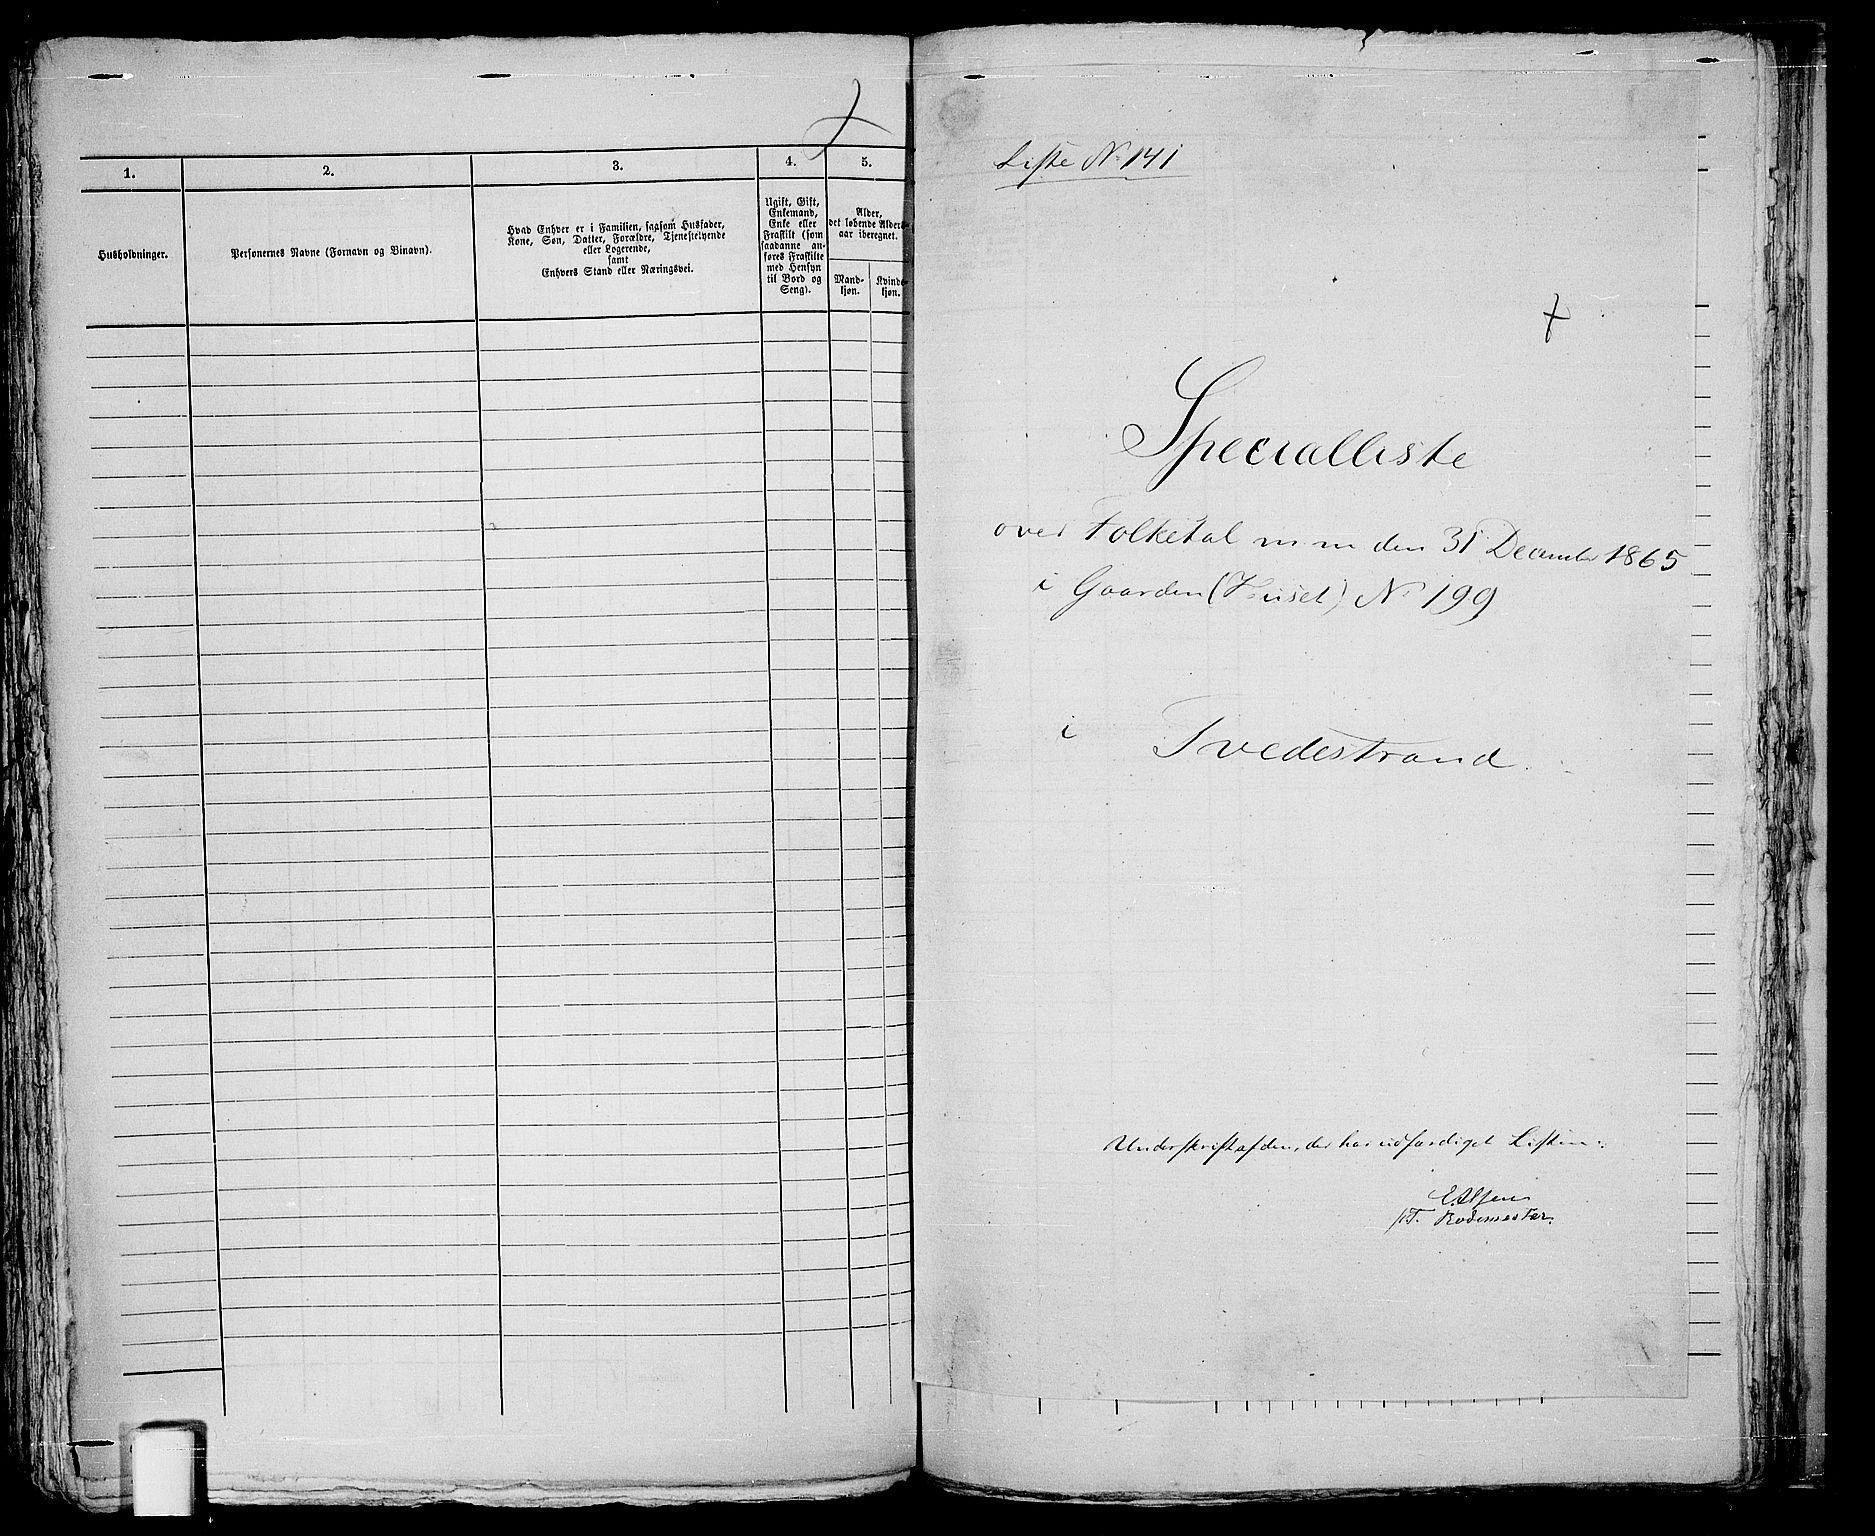 1.
2.
3.
4.
5.
Husholdninger.
Personernes Navne (Fornavn og Binavn).
Hvad Enhver er i Familien, saasom Husfader,
Kone, Søn, Datter, Forældre, Tjenestetyende
eller Logerende,
samt
Enhvers Stand eller Næringsvei.
Ugift, Gift,
Enkemand,
Enke eller
Fraskilt (som
saadanne an-
føres Fraskilte
med Hensyn
til Bord og
Seng).
Alder,
det løbende Alders-
aar iberegnet.
Mand-
kjøn.
Kvinde-
kjøn.
Liste No 141
Specialliste
over Folketal m m den 31 December 1865
i Gaarden (Huset) No 199
i Tvedestrand.
Underskrift af den, der har udfærdiget Listen:
Rodemester.